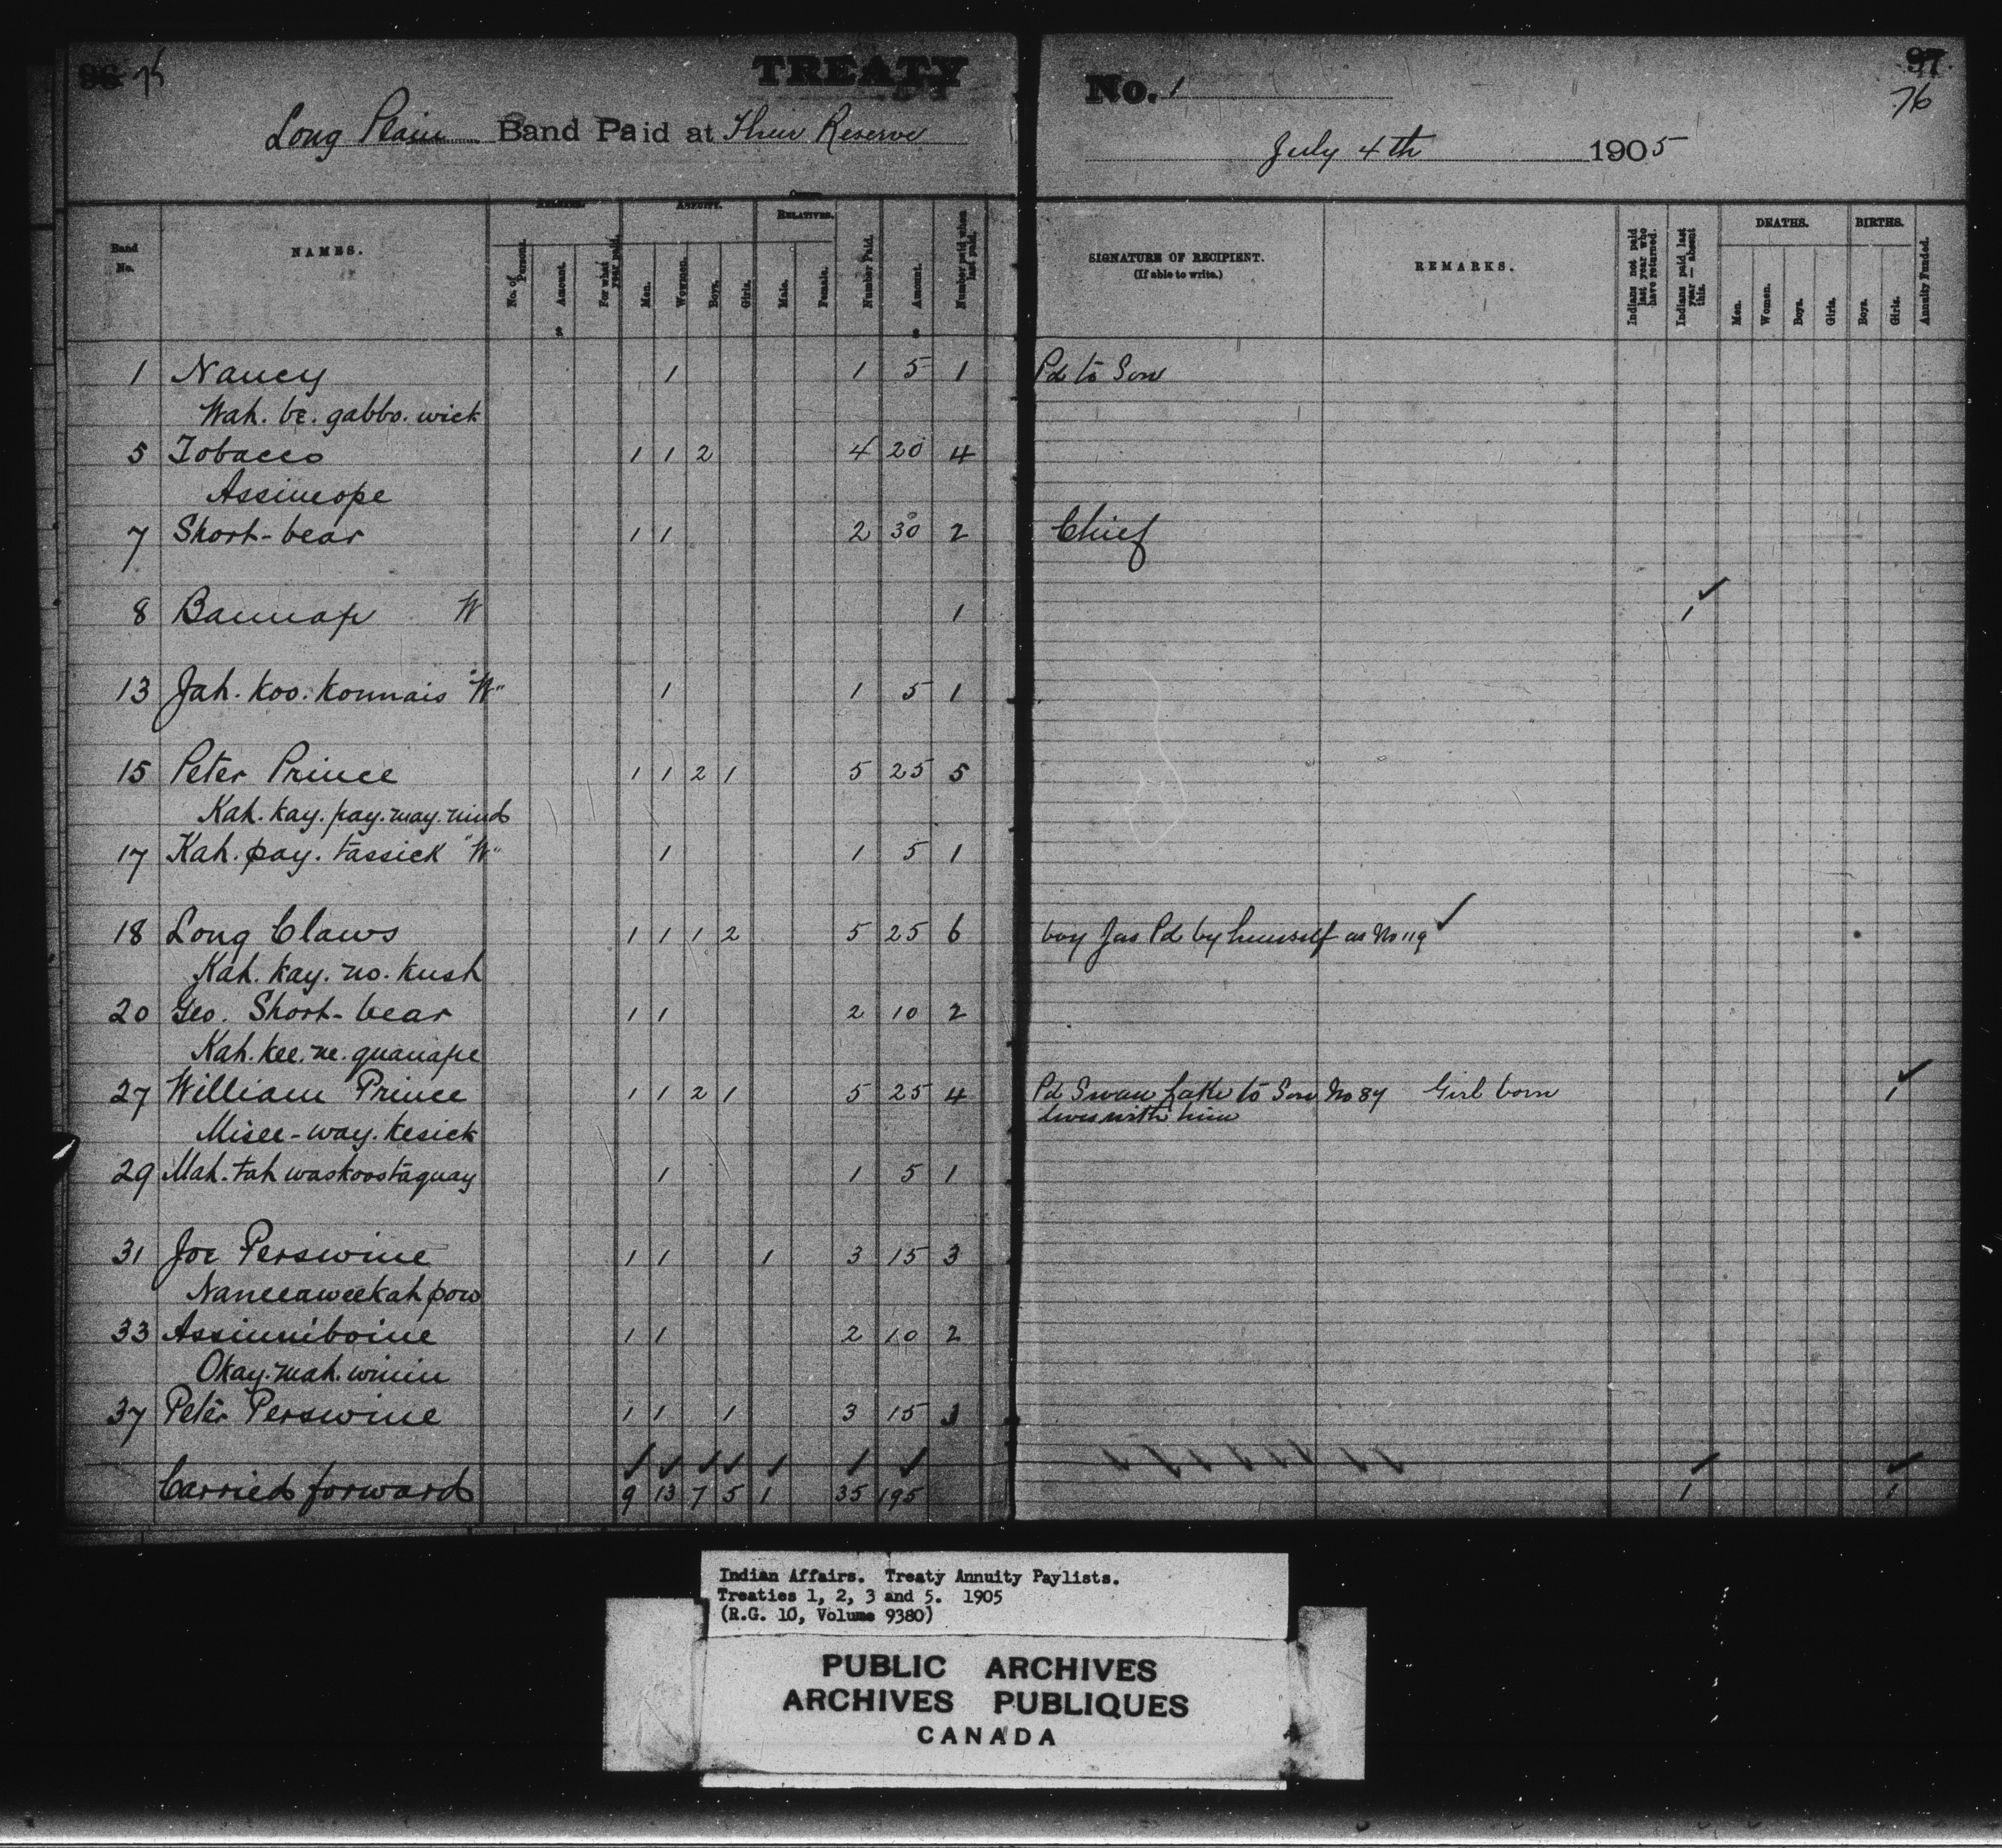 96 75
TREATY
Long Plain Band Paid at Their Reserve
No. 1
97
76
July 4th 1905
Band No.
NAMES.
ARREARS.
No. of Persons.
Amount.
For what year paid.
ANNUITY.
Men.
Women.
Boys.
Girls.
OTHER RELATIVES.
Male.
Female.
Number Paid.
Amount.
Number paid when last paid.
$
$
SIGNATURE OF RECIPIENT.
(If able to write.)
REMARKS.
Indians not paid last year who have returned.
Indians paid last year — absent this.
DEATHS.
Men.
Women.
Boys.
Girls.
BIRTHS.
Boys.
Girls.
Annuity Funded.
1 Nancy 1 1 5 1 Pd to Son
Wah. be. gabbo. wick
5 Tobacco 1 1 2 4 20 4
Assineope
7 Short-bear 1 1 2 30 2 Chief
8 Bannap W 1 1
13 Jah. koo. konnais "W" 1 1 5 1
15 Peter Prince 1 1 2 1 5 25 5
Kah. kay. pay. may. nind
17 Kah. pay. tassick "W" 1 1 5 1
18 Long Claws 1 1 1 2 5 25 6 boy Jas Pd by himself as No 119
Kah. kay. no. kush
20 Geo. Short-bear 1 1 2 10 2
Kah. kee. ne. guanape
27 William Prince 1 1 2 1 5 25 4 Pd Swan Lake to Son No 84 Girl born 1
lives with him
Misee-way. kesick
29 Mah. tah waskoostaquay 1 1 5 1
31 Joe Perswine 1 1 1 3 15 3
Naneeaweekah pow
33 Assinniboine 1 1 2 10 2
Okay. mah. winin
37 Peter Perswine 1 1 1 3 15 3
Carried forward 9 13 7 5 1 35 195 1 1
Indian Affairs. Treaty Annuity Paylists.
Treaties 1, 2, 3 and 5. 1905
(R.G. 10, Volume 9380)
PUBLIC ARCHIVES
ARCHIVES PUBLIQUES
CANADA